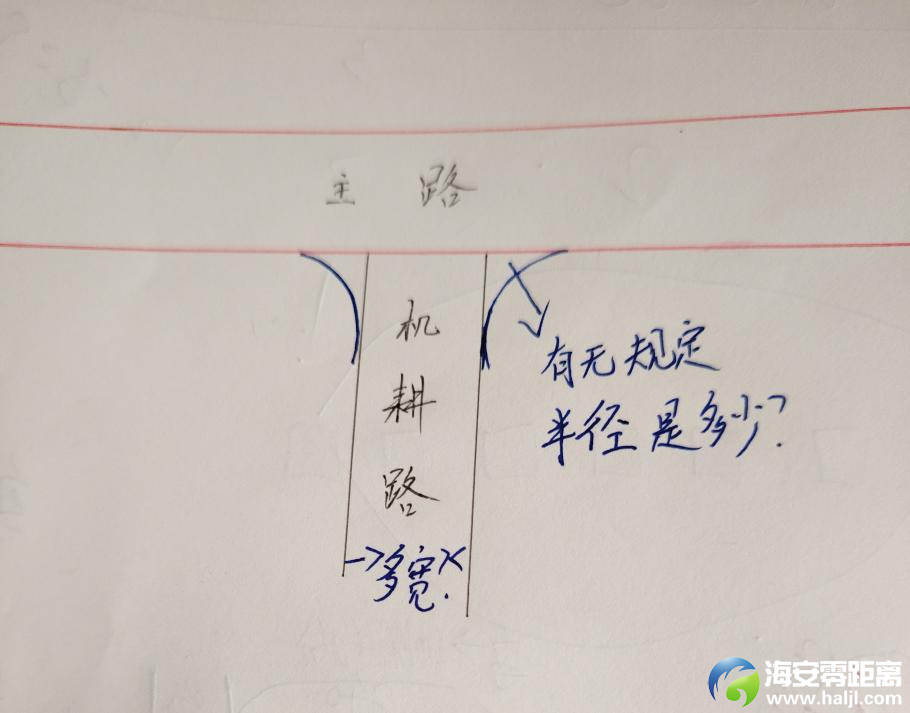 主 路
机
耕
路
多宽.
有无规定
半径是多少?
海安零距离
www.haljl.com